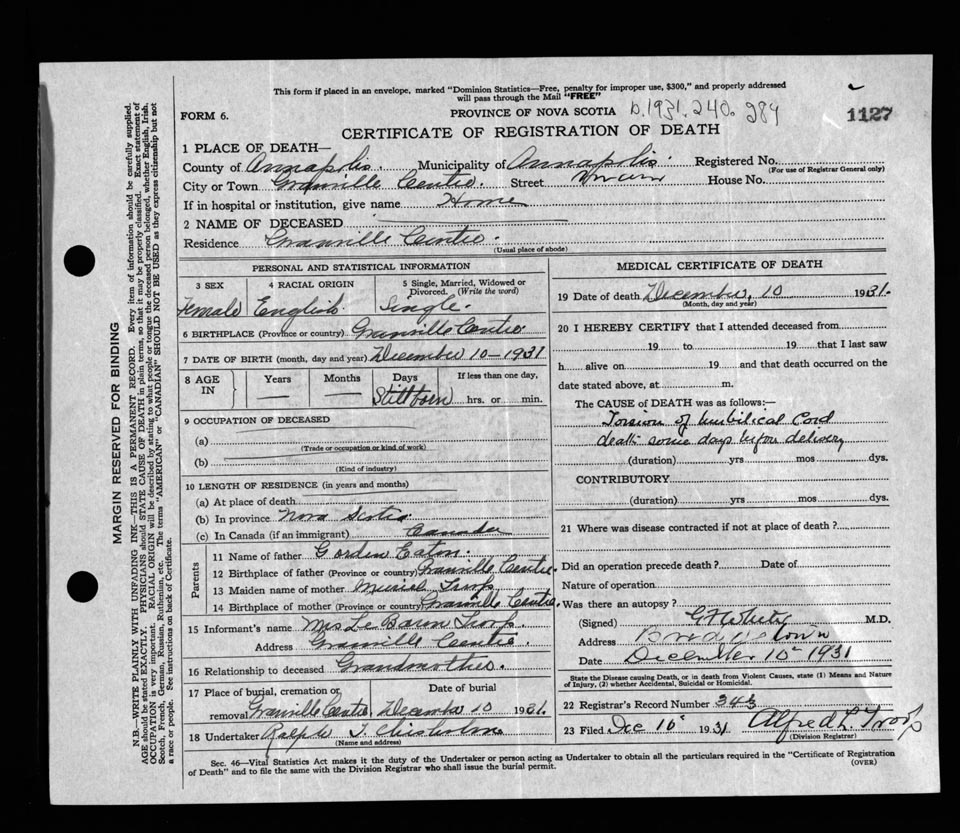 This form if placed in an envelope, marked "Dominion Statistics—Free, penalty for improper use, $300," and properly addressed
will pass through the Mail "FREE"
FORM 6.
PROVINCE OF NOVA SCOTIA
D.1931.240.284
1127
CERTIFICATE OF REGISTRATION OF DEATH
1 PLACE OF DEATH—
County of Annapolis. Municipality of Annapolis. Registered No.
(For use of Registrar General only)
City or Town Granville Centre. Street House No.
If in hospital or institution, give name Home
2 NAME OF DECEASED
Residence Granville Centre.
(Usual place of abode)
PERSONAL AND STATISTICAL INFORMATION
3 SEX
Female
4 RACIAL ORIGIN
English.
5 Single, Married, Widowed or
Divorced. (Write the word)
Single
6 BIRTHPLACE (Province or country) Granville Centre
7 DATE OF BIRTH (month, day and year) December 10—1931
8 AGE
IN
Years
Months
Days
Stillborn
If less than one day,
hrs. or min.
9 OCCUPATION OF DECEASED
(a)
(Trade or occupation or kind of work)
(b)
(Kind of industry)
10 LENGTH OF RESIDENCE (in years and months)
(a) At place of death
(b) In province Nova Scotia
(c) In Canada (if an immigrant) Canada
Parents
11 Name of father Gorden Eaton.
12 Birthplace of father (Province or country) Granville Centre.
13 Maiden name of mother Troop
14 Birthplace of mother (Province or country) Granville Centre.
15 Informant's name Mrs Le Baron Troop.
Address Granville Centre.
16 Relationship to deceased Grandmother.
17 Place of burial, cremation or
removal Granville Centre.
Date of burial
December 10 1931.
18 Undertaker Ralph I. Chisholm
(Name and address)
MEDICAL CERTIFICATE OF DEATH
19 Date of death December, 10 1931.
(Month, day and year)
20 I HEREBY CERTIFY that I attended deceased from
19 to 19 that I last saw
h alive on 19 and that death occurred on the
date stated above, at m.
The CAUSE of DEATH was as follows:—
Torsion of Umbilical Cord
death some days before delivery
(duration) yrs mos dys.
CONTRIBUTORY
(duration) yrs mos dys.
21 Where was disease contracted if not at place of death ?
Did an operation precede death ? Date of
Nature of operation
Was there an autopsy ?
(Signed) M.D.
Address Bridgetown
Date December 10" 1931
State the Disease causing Death, or in death from Violent Causes, state (1) Means and Nature
of Injury, (2) whether Accidental, Suicidal or Homicidal.
22 Registrar's Record Number 343
23 Filed Dec 16" 1931 Alfred L. Troop
(Division Registrar)
Sec. 46—Vital Statistics Act makes it the duty of the Undertaker or person acting as Undertaker to obtain all the particulars required in the "Certificate of Registration
of Death" and to file the same with the Division Registrar who shall issue the burial permit.
(OVER)
MARGIN RESERVED FOR BINDING
N.B.—WRITE PLAINLY WITH UNFADING INK—THIS IS A PERMANENT RECORD. Every item of information should be carefully supplied.
AGE should be stated EXACTLY. PHYSICIANS should STATE CAUSE OF DEATH in plain terms, so that it may be properly classified. Exact statement of
OCCUPATION is very important. RACIAL ORIGIN will be described by stating to what people or tongue the deceased person belonged, whether English, Irish,
Scotch, French, German, Russian, Ruthenian, etc. The terms "AMERICAN" or "CANADIAN" SHOULD NOT BE USED as they express citizenship but not
a race or people. See instructions on back of Certificate.